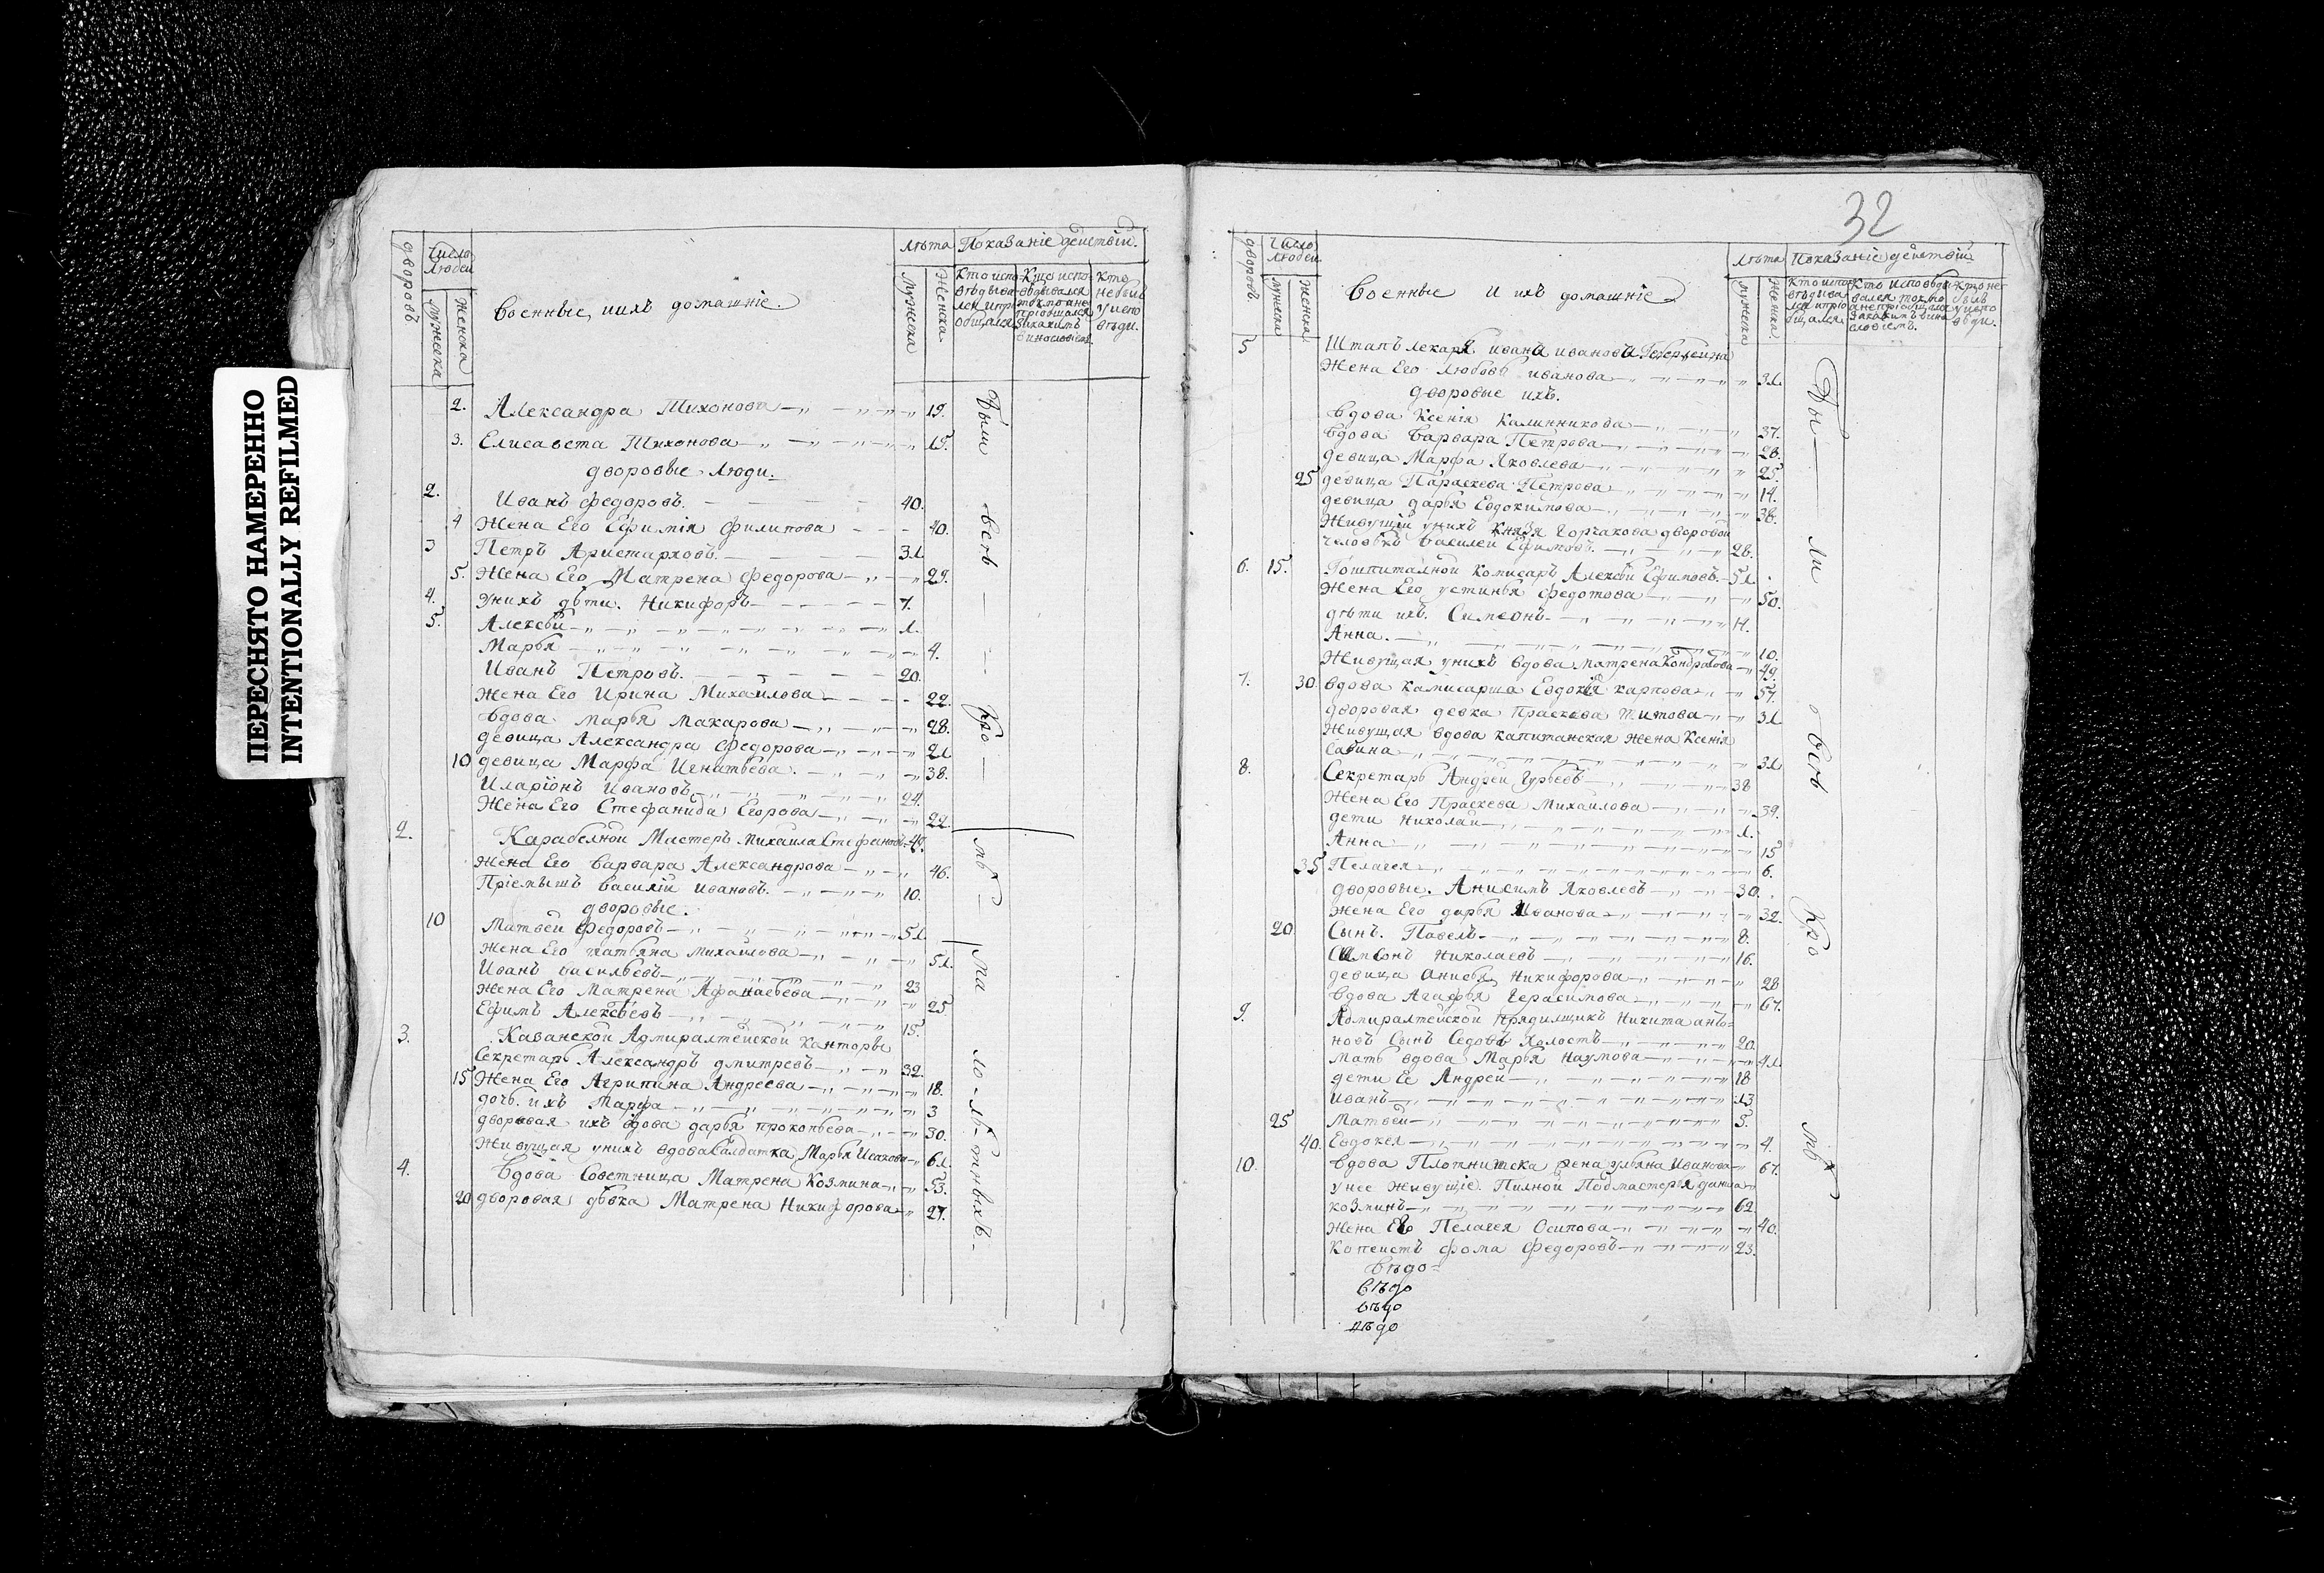 ПЕРЕСНЯТО НАМЕРЕННО
INTENTIONALLY REFILMED
дворовъ
Число людей
мужеска
женска
Военные, иихъ домашніе.
лѣта
мужеска
женска
Показаніе действій.
Кто испо-
вѣдыва
лся ипрі
общался
Кто испо-
вѣдывался
токмо ане
пріобщался
изакакимъ
винословіем
Кто
небылъ
уиспо
вѣди.
2. Александра Тихонова 19.
3. Елисавета Тихонова 15.
дворовые люди.
2. Иванъ федоровъ. 40.
4 Жена Его Ефимія филипова 40.
3 Петръ Аристарховъ. 31
5. Жена Его Матрена федорова 29.
4. Унихъ дѣти. Никифоръ 7.
5. Алексѣй 1.
Марья 4.
Иванъ Петровъ. 20.
Жена Его Ирина Михайлова 22.
вдова Марья Макарова 28.
девица Александра федорова 21
10 девица Марфа Игнатьева. 38.
Иларіонъ Ивановъ 24.
Жена Его Стефанида Егорова 22.
2. Карабелной Мастеръ Михаила Стефановъ 47.
Жена Его Варвара Александрова 46.
Пріемышъ Василій Ивановъ. 10.
дворовые.
10 Матвей федоровъ 51
Жена Его татьяна Михайлова 51.
Иванъ Васильевъ 23
Жена Его Матрена Афанасьева 25
Ефимъ Алексѣевъ 15.
3. Казанской Адмиралтейской Канторы
Секретарь Александръ дмитревъ 32.
15 Жена Его Агрипина Андреева 18.
дочь ихъ Марфа 3
дворовая ихъ вдова дарья прокопьева 30.
Живущая унихъ вдова Салдатка Марья Исакова 61.
4. Вдова Советница Матрена Козмина 53.
20 дворовая дѣвка Матрена Никифорова 27.
Были
всѣ
кро
мѣ
ма
ло-лѣ-тныхъ.
32
дворовъ
Число людей
мужеска
женска
Военные И ихъ домашніе
лѣта
мужеска
женска
Показаніе действій
Кто испо
вѣдыва
лся ипріо
бщался
Кто исповѣды
вался токмо
анепріобщался
изакакимъ вино
словіемъ.
Кто не
былъ
уиспо
вѣди.
5 Штапъ лекаря ивана иванова
Жена Его Любовь иванова 31.
дворовые ихъ.
вдова Ксенія Калинникова 37.
вдова Варвара Петрова 28.
девица Марфа Яковлева 25.
25 девица Параскева Петрова 14.
девица дарья Евдокимова 38.
Живущій унихъ Князя Горчакова дворовой
человѣкъ Василей Ефимовъ. 28.
6. 15. Гошпиталной Комисаръ Алексѣй Ефимовъ. 51.
Жена Его устинья федотова 50.
дѣти ихъ. Симеонъ 14.
Анна. 10.
Живущая унихъ вдова Матрена Кондратова 49.
7. 30. вдова Камисарша Евдокія карпова 57.
дворовая девка Праскева Титова 31.
Живущая вдова капитанская жена Ксенія
Савина 31.
8. Секретарь Андрей Гурьевъ 38
Жена Его Праскева Михайлова 39.
дети Николай 1.
Анна 15
35 Пелагея 6.
дворовые. Анисимъ Яковлевъ 30.
Жена Его дарья Иванова 32.
20 Сынъ. Павелъ 8.
Симеонъ Николаевъ 16.
девица Анисья Никифорова 28
вдова Агафья Герасимова 67.
9. Адмиралтейской Прядилщикъ Никита анто=
новъ Сынъ Седовъ Холостъ 20.
Мать вдова Марья Наумова 41.
дети Ее Андрей 18
Иванъ 13
25 Матвей 5.
40. Евдокея 4.
10. вдова Плотничска жена ульяна Иванова 67.
унее Живущіе. Пилной Подмастерья данила
козминъ 62
Жена Его Пелагея Осипова 40.
Копеистъ фома Федоровъ 23.
Вѣдо=
вѣдо
вѣдо
вѣдо
Бы
ли
всѣ
кро
мѣ